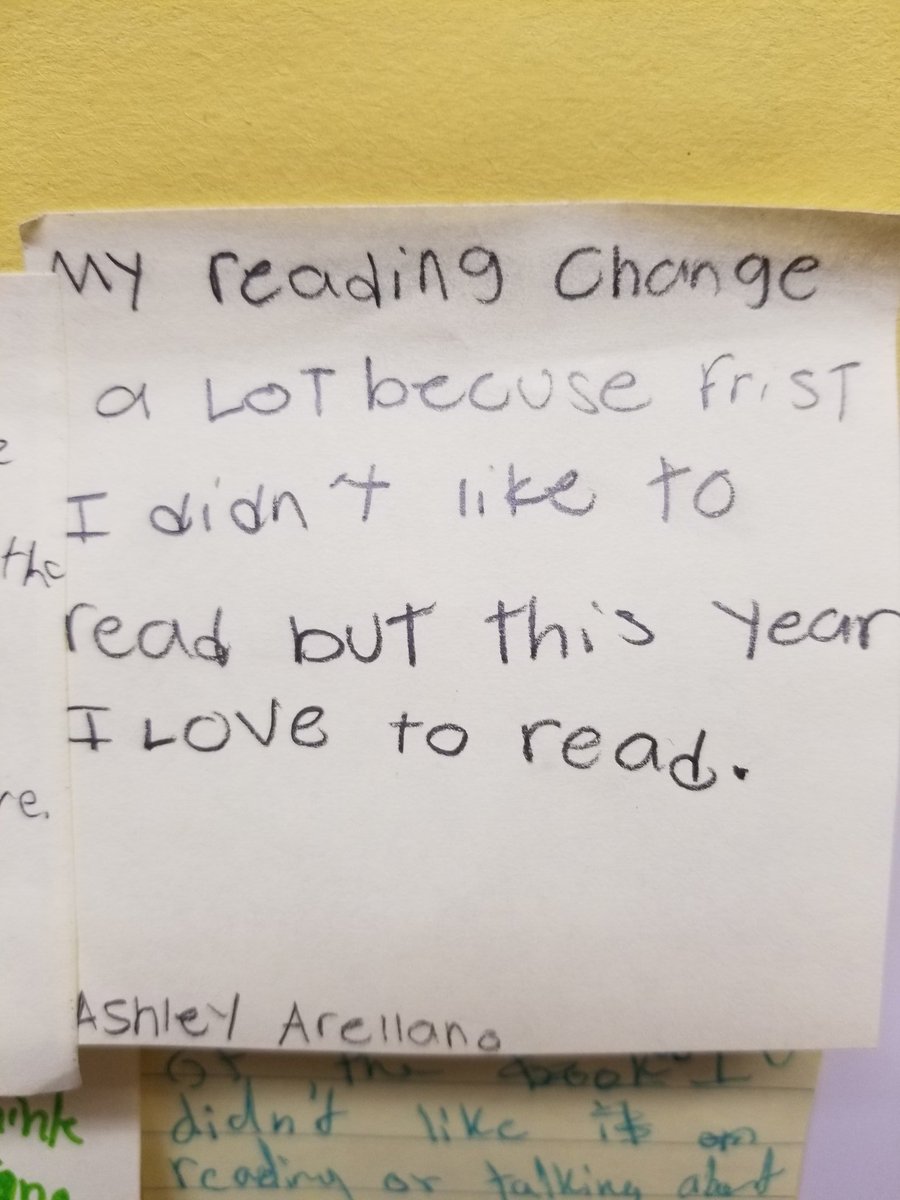 My reading Change
a LOT becuse frist
I didn't like to
read but this year
I LOVE to read.
Ashley Arellano
the
re.
of the book I
didn't like it on
reading or talking about